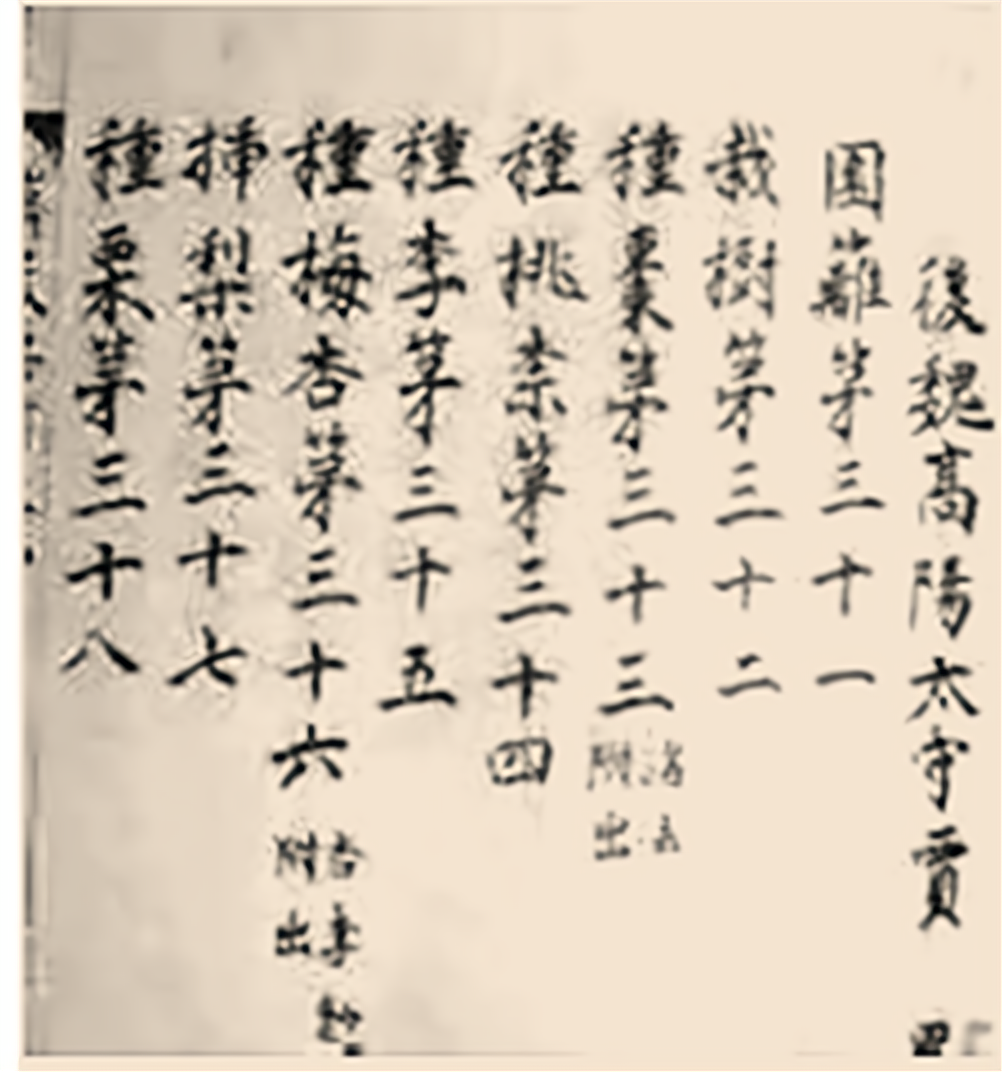 後魏高陽太守賈
園籬苐三十一
栽樹苐三十二
種棗苐三十三 諸法附出
種桃柰苐三十四
種李苐三十五
種梅杏苐三十六 杏李附出
插梨苐三十七
種栗苐三十八